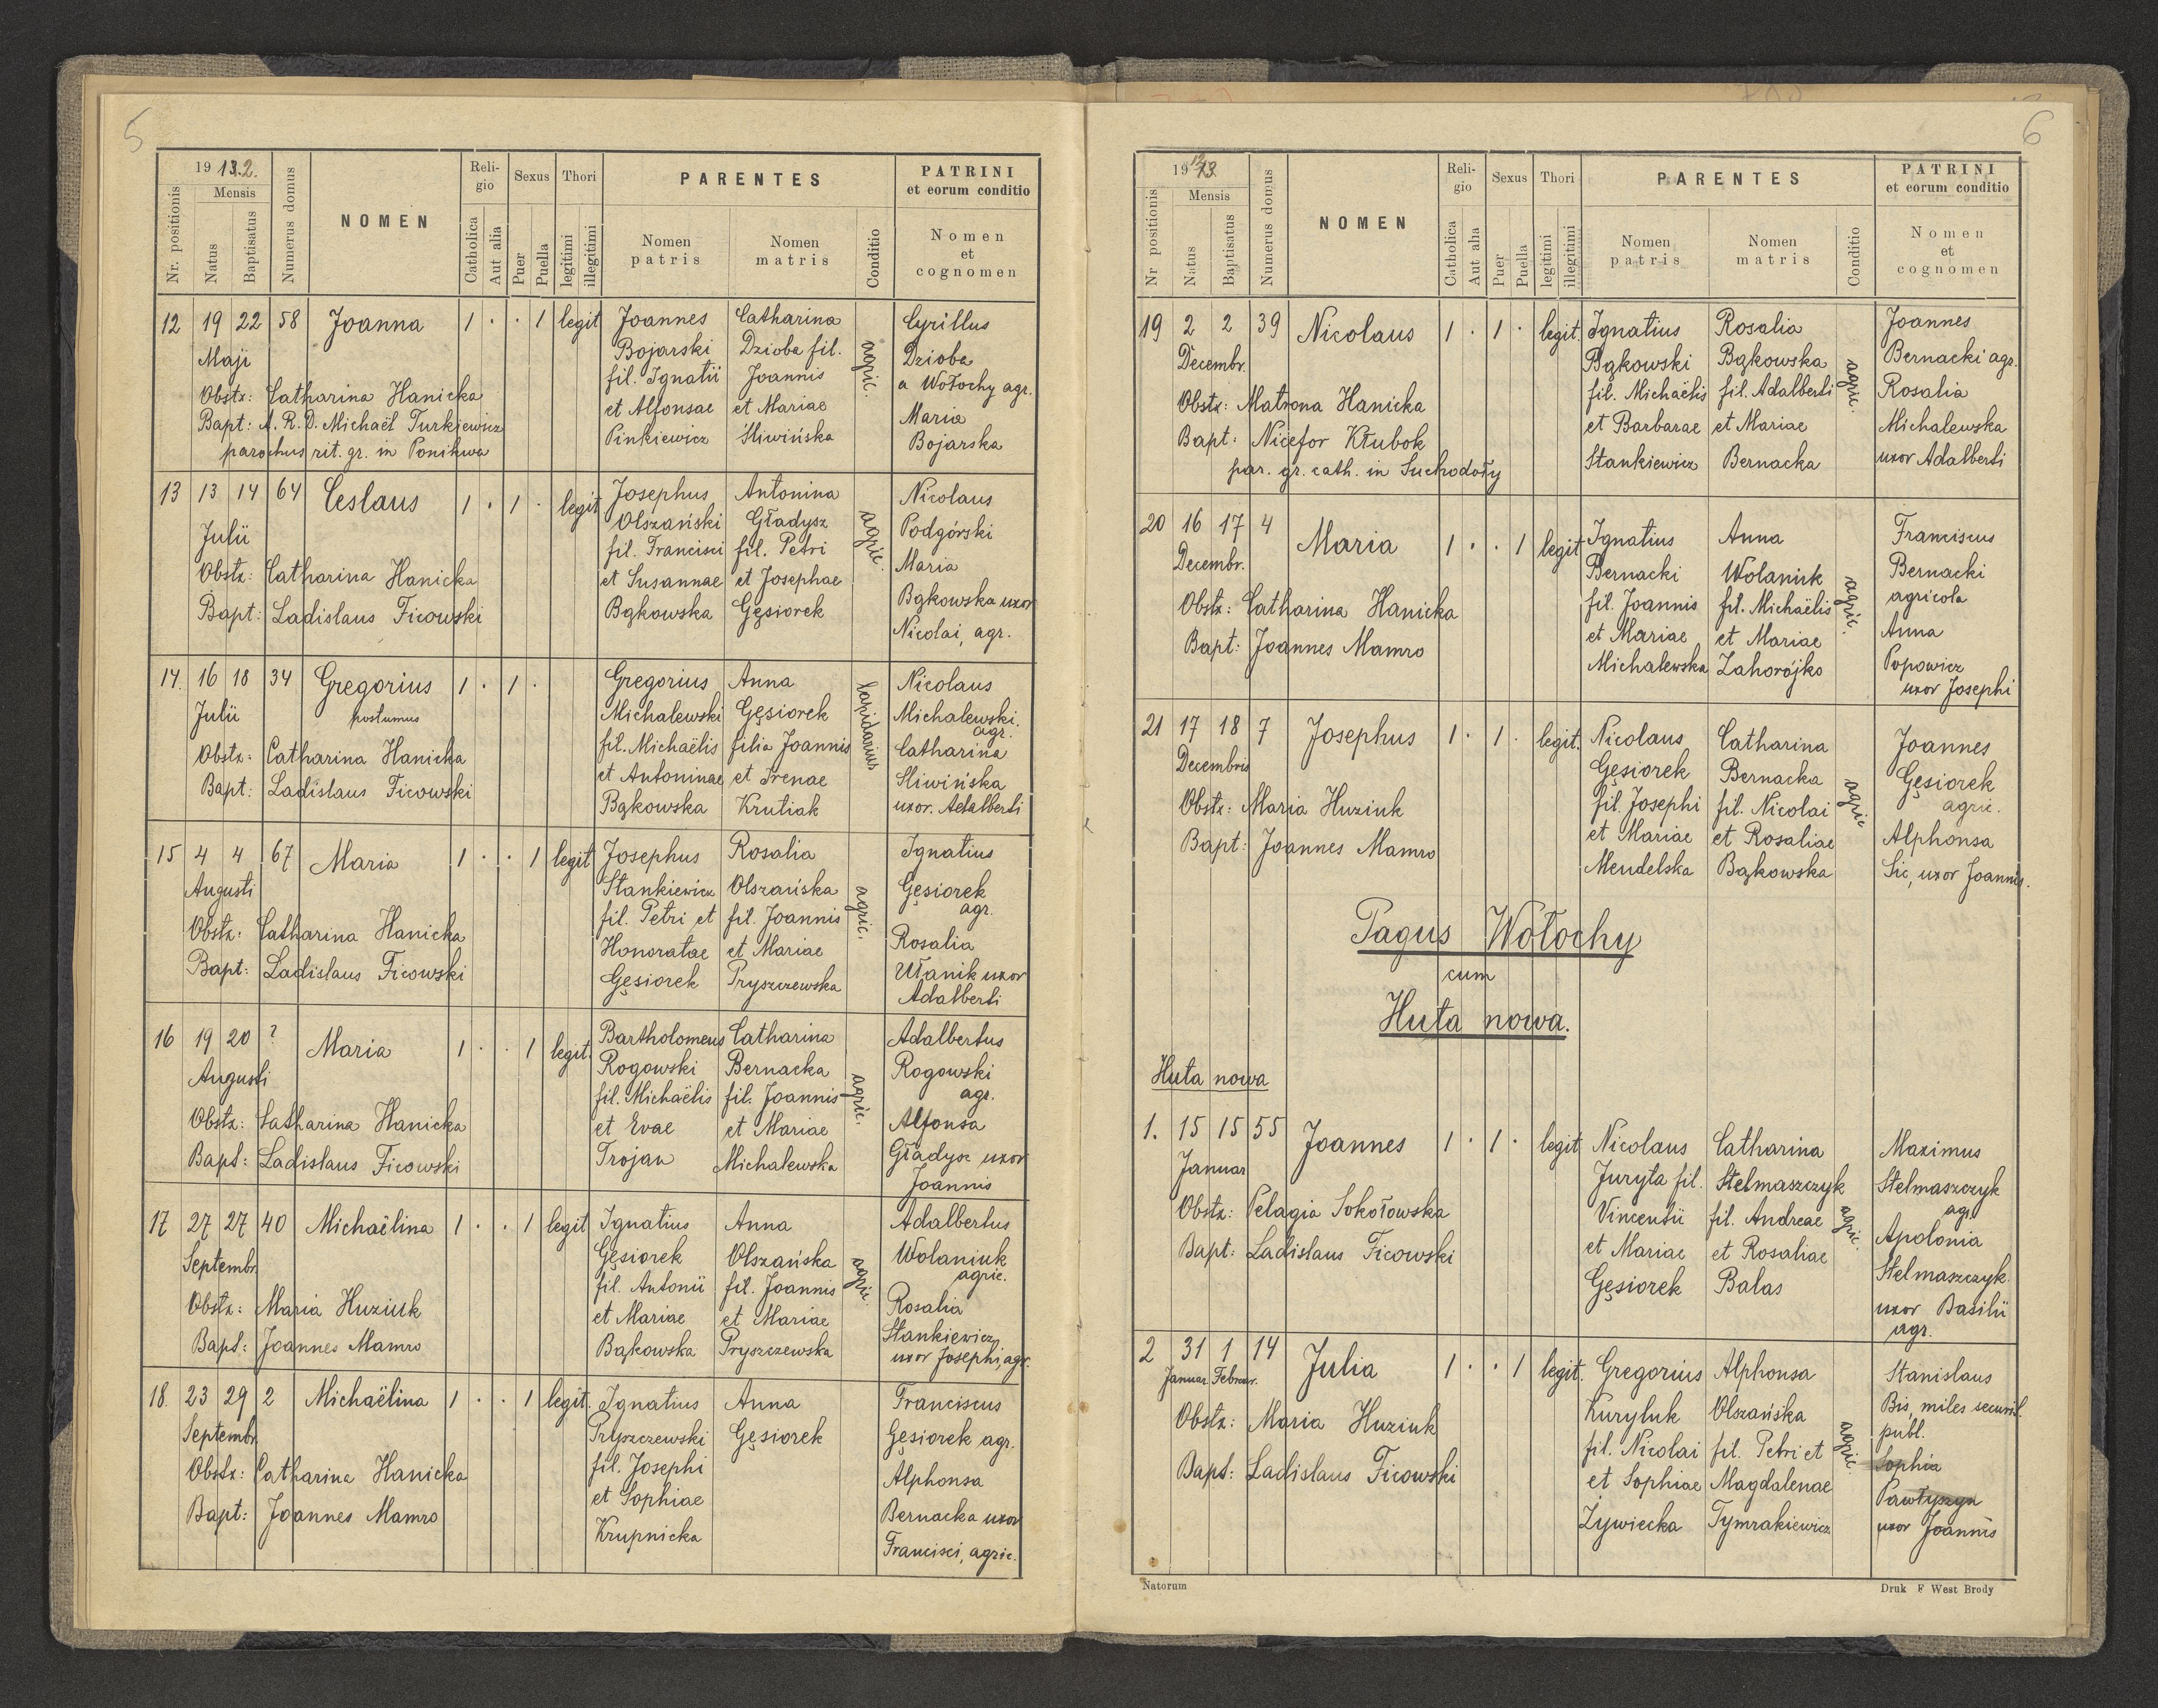 5
19 13.2.
Mensis
Nr. positionis
Natus
Baptisatus
Numerus domus
NOMEN
Religio
Catholica
Aut alia
Sexus
Puer
Puella
Thori
legitimi
illegitimi
PARENTES
Nomen patris
Nomen matris
Conditio
PATRINI
et eorum conditio
Nomen
et
cognomen
12 19 22 58 Joanna 1 · · 1 legit Joannes Catharina Cyrillus
Bojarski Dzioba fil. agric. Dzioba
Maji fil. Ignatii Joannis a Wołochy agr.
Obstx: Catharina Hanicka et Alfonsae et Mariae Maria
Bapt: A. R. D. Michaël Turkiewicz Pinkiewicz Śliwińska Bojarska
parochus rit. gr. in Ponikwa
13 13 14 64 Ceslaus 1 · 1 · legit Josephus Antonina Nicolaus
Julii Olszański Gładysz agric. Podgórski
fil. Francisci fil. Petri Maria
Obstx: Catharina Hanicka et Susannae et Josephae Bąkowska uxor
Bapt: Ladislaus Ficowski Bąkowska Gęsiorek Nicolai, agr.
14. 16 18 34 Gregorius 1 · 1 · Gregorius Anna Nicolaus
Julii postumus Michalewski Gęsiorek lapidarius Michalewski. agr.
Obstx: Catharina Hanicka fil. Michaëlis filia Joannis Catharina
et Antoninae et Irenae Sliwińska
Bapt: Ladislaus Ficowski Bąkowska Krutiak uxor. Adalberti
15 4 4 67 Maria 1 · · 1 legit Josephus Rosalia Ignatius
Augusti Stankiewicz Olszańska agric. Gęsiorek
fil. Petri et fil. Joannis agr.
Obstx: Catharina Hanicka Honoratae et Mariae Rosalia
Bapt: Ladislaus Ficowski Gęsiorek Pryszczewska Ułanik uxor
Adalberti
16 19 20 ? Maria 1 · · 1 legit. Bartholomeus Catharina Adalbertus
Augusti Rogowski Bernacka agric. Rogowski
fil. Michaëlis fil. Joannis agr.
Obstx: Catharina Hanicka et Evae et Mariae Alfonsa
Bapt: Ladislaus Ficowski Trojan Michalewska Gładysz uxor
Joannis
17 27 27 40 Michaëlina 1 · · 1 legit Ignatius Anna Adalbertus
Septembr. Gęsiorek Olszańska agric. Wolaniuk
fil. Antonii fil. Joannis agric.
Obstx: Maria Huziuk et Mariae et Mariae Rosalia
Bapt: Joannes Mamro Bąkowska Pryszczewska Stankiewicz
uxor Josephi, agr.
18. 23 29 2 Michaëlina 1 · · 1 legit. Ignatius Anna Franciscus
Septembr. Pryszczewski Gęsiorek Gęsiorek agr.
Obstx: Catharina Hanicka fil. Josephi Alphonsa
et Sophiae Bernacka uxor
Bapt: Joannes Mamro Krupnicka Francisci, agric.
6
19 12
Mensis
Nr positionis
Natus
Baptisatus
Numerus domus
NOMEN
Religio
Catholica
Aut alia
Sexus
Puer
Puella
Thori
legitimi
illegitimi
PARENTES
Nomen patris
Nomen matris
Conditio
PATRINI
et eorum conditio
Nomen
et
cognomen
19 2 2 39 Nicolaus 1 · 1 · legit. Ignatius Rosalia Joannes
Decembr. Bąkowski Bąkowska agric. Bernacki agr.
Obstx: Matrona Hanicka fil. Michaëlis fil. Adalberti Rosalia
Bapt: Nicefor Kłubok et Barbarae et Mariae Michalewska
par. gr. cath. in Suchodoły Stankiewicz Bernacka uxor Adalberti
20 16 17 4 Maria 1 · · 1 legit Ignatius Anna Franciscus
Decembr. Bernacki Wolaniuk agric. Bernacki
Obstx: Catharina Hanicka fil. Joannis fil. Michaëlis agricola
et Mariae et Mariae Anna
Bapt: Joannes Mamro Michalewska Zahorójko Popowicz
uxor Josephi
21 17 18 7 Josephus 1 · 1 · legit. Nicolaus Catharina Joannes
Decembris Gęsiorek Bernacka agric Gęsiorek
Obstx: Maria Huziuk fil. Josephi fil. Nicolai agric.
Bapt: Joannes Mamro et Mariae et Rosaliae Alphonsa
Mendelska Bąkowska Sic, uxor Joannis.
Pagus Wołochy
cum
Huta nowa.
Huta nowa
1. 15 15 55 Joannes 1 · 1 · legit Nicolaus Catharina Maximus
Januar Juryta fil. Stelmaszczyk agric. Stelmaszczyk
Obstx: Pelagia Sokołowska Vincentii fil. Andreae agr.
Bapt: Ladislaus Ficowski et Mariae et Rosaliae Apolonia
Gęsiorek Balas Stelmaszczyk
uxor Basilii
agr.
2 31 1 14 Julia 1 · · 1 legit. Gregorius Alphonsa Stanislaus
Januar. Februar. Kuryluk Olszańska agric. Bis, miles securit.
Obstx: Maria Huziuk fil. Nicolai fil. Petri et publ.
et Sophiae Magdalenae Sophia
Bapt: Ladislaus Ficowski Żywiecka Tymrakiewicz Pawłyszyn
uxor Joannis
Natorum
Druk F West Brody